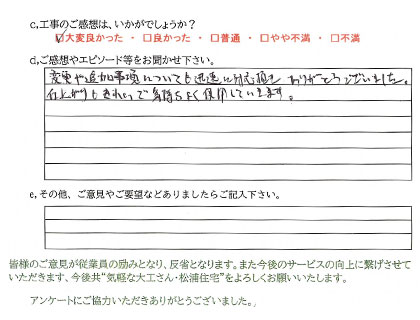 c,工事のご感想は、いかがでしょうか？
☑大変良かった ・ □良かった ・ □普通 ・ □やや不満 ・ □不満
d,ご感想やエピソード等をお聞かせ下さい。
変更や追加事項についても迅速に対応頂きありがとうございました。
仕上がりもきれいで気持ちよく使用しています。
e,その他、ご意見やご要望などありましたらご記入下さい。
皆様のご意見が従業員の励みとなり、反省となります。また今後のサービスの向上に繋げさせて
いただきます、今後共“気軽な大工さん・松浦住宅”をよろしくお願いいたします。
アンケートにご協力いただきありがとうございました。